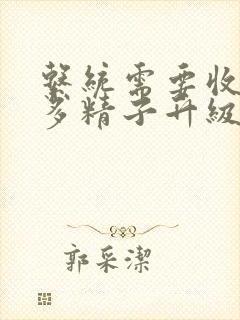 繫統需要收
多精子升級
郭采潔